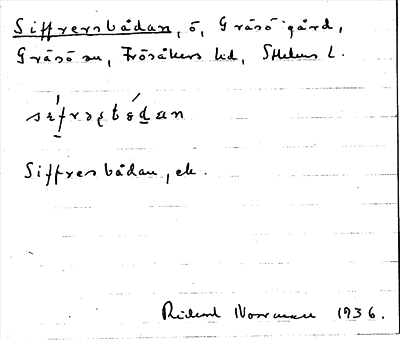 Siffrersbådan, ö, Gräsö gård,
Gräsö sn, Frösåkers hd, Sthlms l.
Siffrenbådan, ek.
Rickard Norrman 1936.